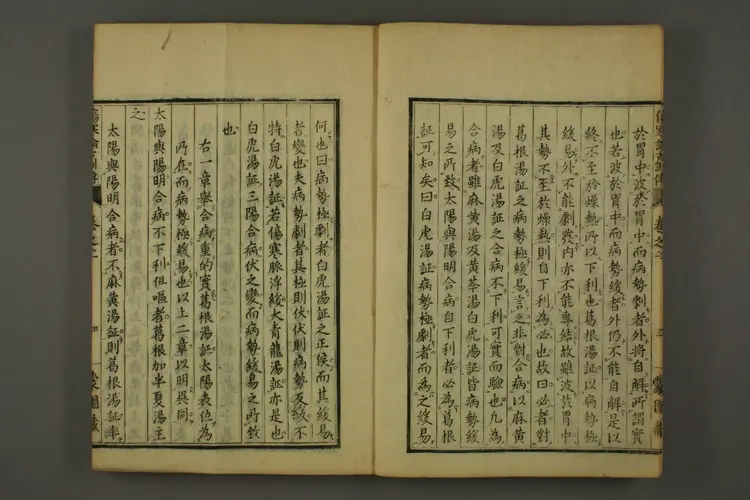 於胃中波於胃中而病勢劇者外將自解所謂實
也若波於胃中而病勢緩者外仍不能自解是以
終不至於燥熱所以下利也葛根湯証以病勢極
緩易外不能劇發內亦不能專結故雖波於胃中
其勢不至於燥熱則自下利為必也故曰必者對
葛根湯証之病勢極緩易言之非對合病以麻黃
湯及白虎湯証之合病不下利可實而驗也凡為
合病者雖麻黃湯及黃芩湯白虎湯証皆病勢緩
易之所致太陽與陽明合病自下利者必為葛根
証可知矣曰白虎湯証病勢極劇者而為之緩易
何也曰病勢極劇者白虎湯証之正候而其緩易
者變也夫病勢劇者其極則伏伏則病勢及緩不
特白虎湯証若傷寒脉浮緩大青龍湯証亦是也
白虎湯証三陽合病伏之變而病勢緩易之所致
也
右一章舉合病重的實葛根湯証太陽表位為
所在而病勢極緩易也以上二章以明吳同
太陽與陽明合病不下利但嘔者葛根加半夏湯主
之
太陽與陽明合病者不麻黃湯証則葛根湯証率
卷之二
三
四